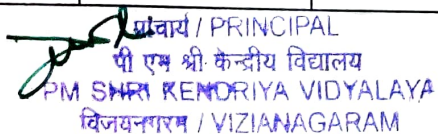 प्राचार्य / PRINCIPAL
पी एम श्री केन्द्रीय विद्यालय
PM SHRI KENDRIYA VIDYALAYA
विजयनगरम / VIZIANAGARAM